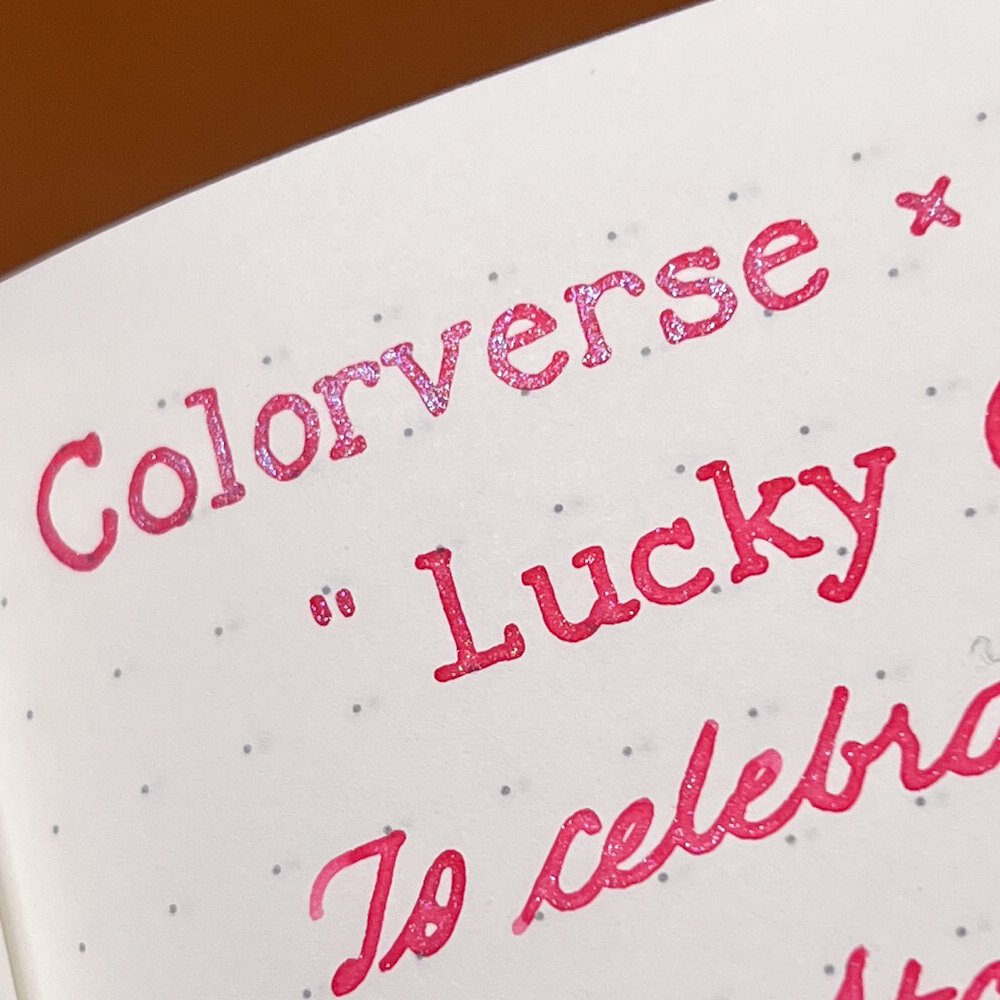 Colorverse ×
" Lucky
To celebra